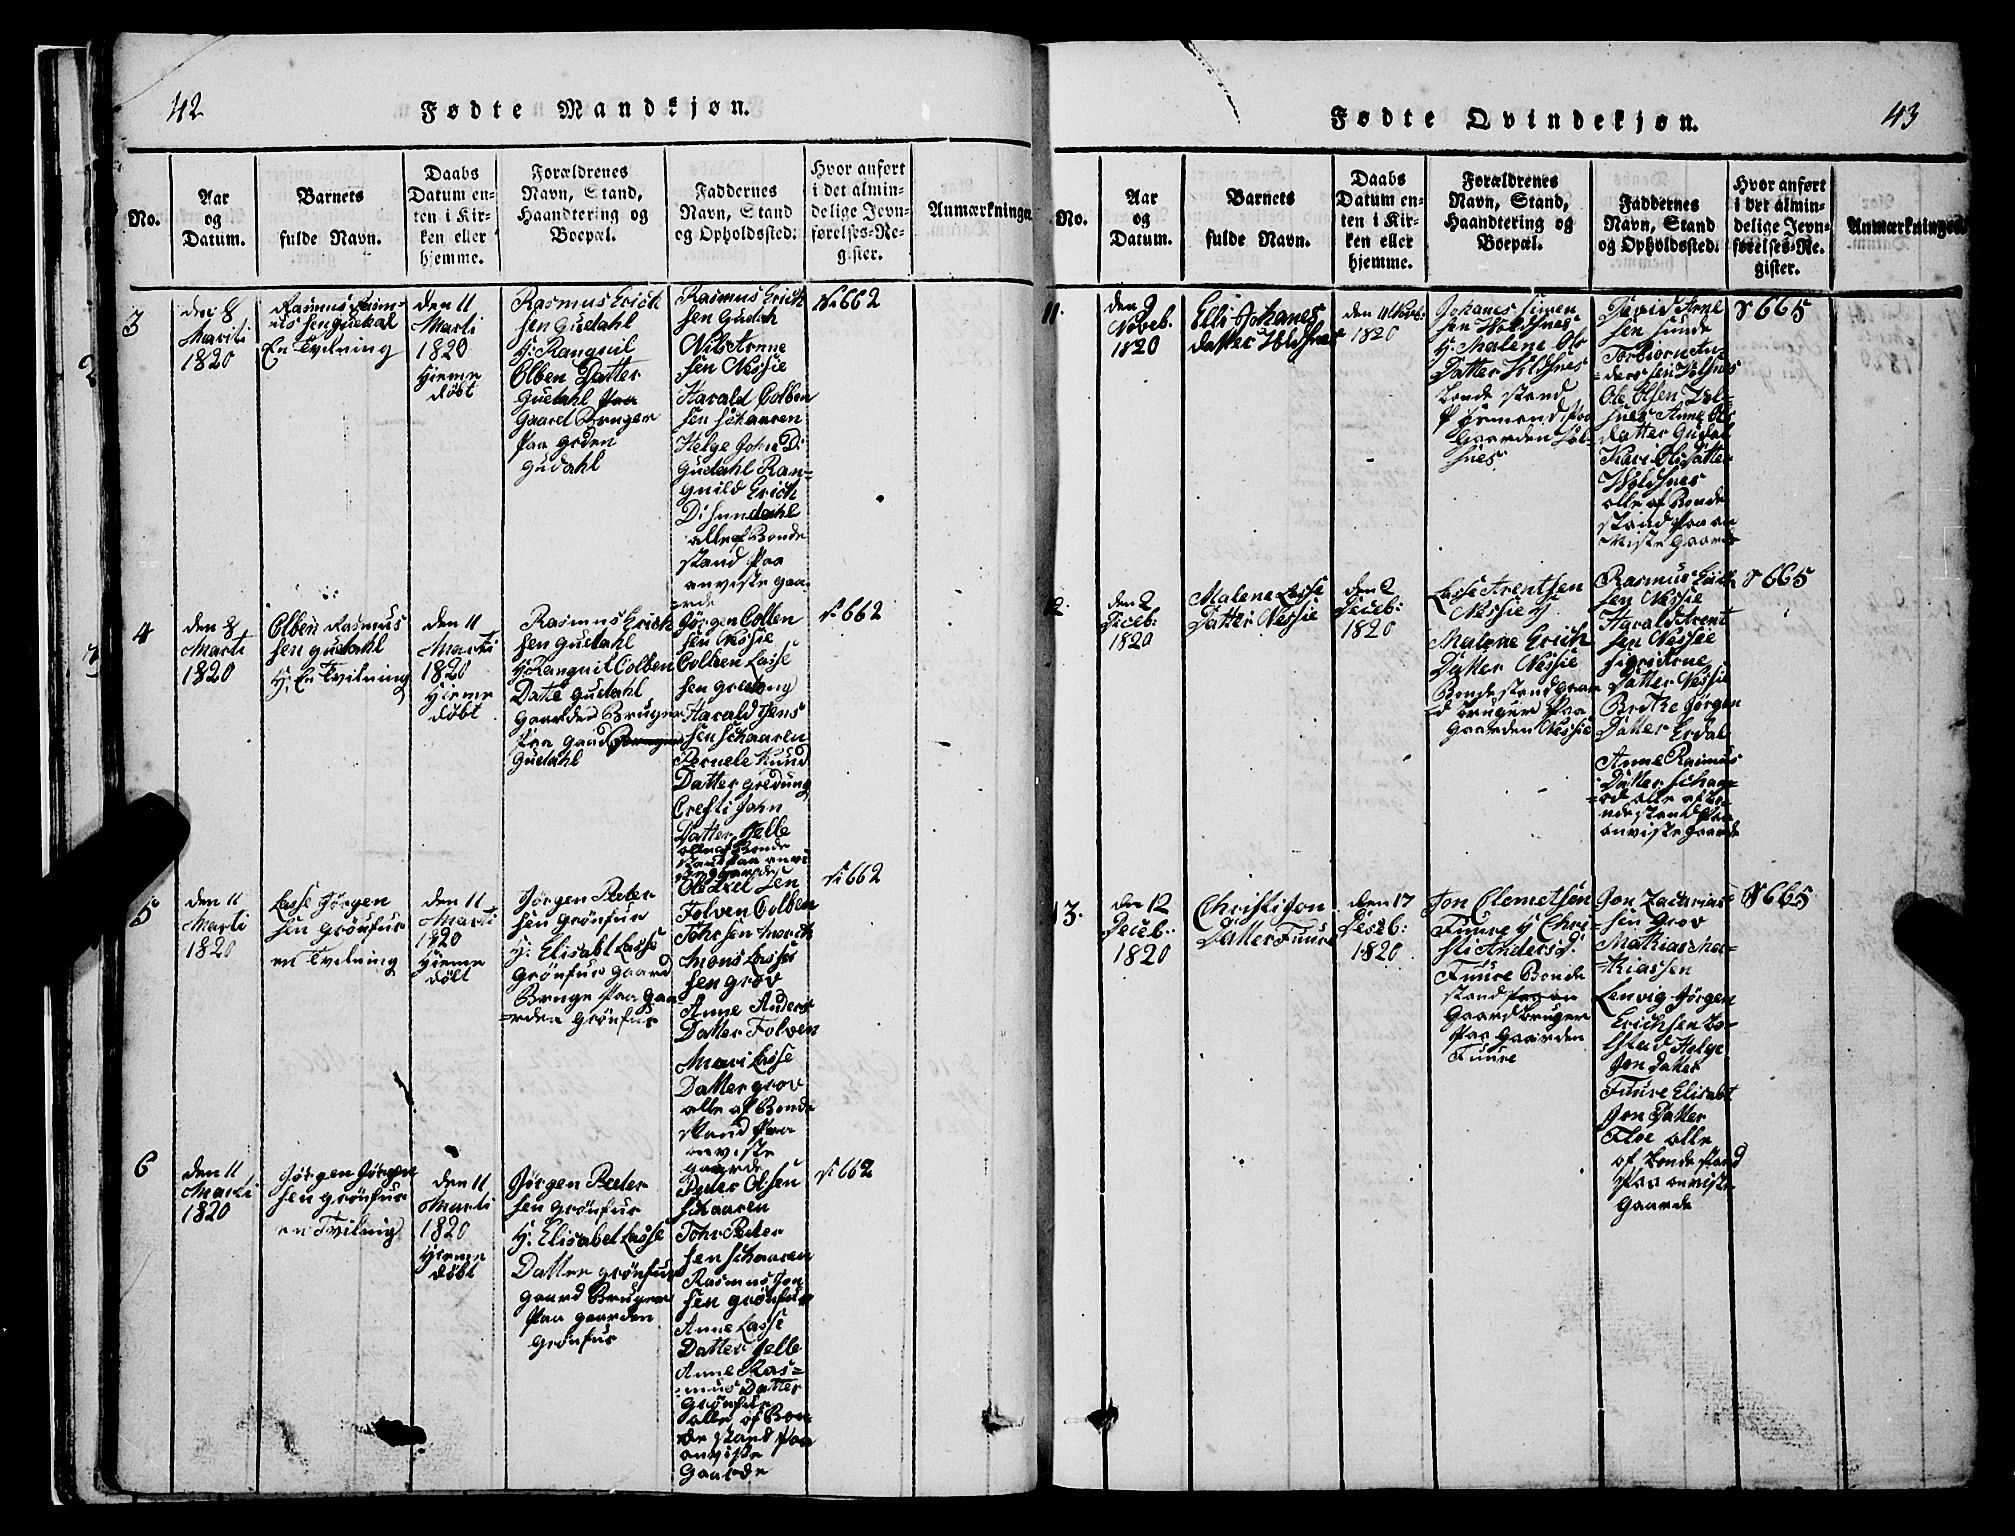 42
Fødte Mandkjøn.
No.
Aar
og
Datum.
Barnets
fulde Navn.
Daabs
Datum en-
ten i Kir-
ken eller
hjemme.
Forældrenes
Navn, Stand,
Haandtering og
Boepæl.
Faddernes
Navn, Stand
og Opholdssted.
Hvor anført
i det almin-
delige Jevn-
førelses-Re-
gister.
Anmærkninger
3
den 8
Marti
1820
Rasmus Rasm-
us sen gudal
En Tvilning
den 11
Marti
1820
Hieme
døbt
Rasmus Erich
sen Gudahl
H: Ranguil
Olben Datter
Gudahl Paa
Gaard Bruger
Paa gorden
Gudahl
Rasmus Erich
sen Gudah
Nils Arnne
sen Nessie
Harald Colben
sen Schaaren
Helge John D:
Gudahl Ran-
gnild Erich
D: Sundahl
alle af Bonde
stand Paa
anviste gaa-
rde
N 662
4
den 8
Marti
1820
Olben Rasmus
sen Gudahl
H: En Tvilning
den 11
Marti
1820
Hieme
døbt
Rasmus Erich
sen Gudahl
H: Ranguil Colben
Date Gudahl
Gaarden Bruger
Paa Gaard
Gudahl
Jørgen Colben
sen Nessie
Colben Lasse
sen Gredung
Harald Jens
sen Schaaren
Pernele Knud
Datter Gredung
Cresti John
Datter Helle
alle af Bonde
stand Paa anvi
ste gaarde
N 662
5
den 11
Marti
1820
Lasse Jørgen
sen Grönfur
en Tvilning
den 11
Marti
1820
Hieme
døbt
Jørgen Peter
sen Grönfur
H: Elisabt Lasse
Grönfur Gaard
Bruge Paa Gaa-
=rden Grönfur
Ole Axel sen
Folven Colben
Tohrsen
Mons Lasse
sen Grov
Anne Anders
Datter Folven
Mari Lasse
Datter Grov
alle af Bonde
stand Paa
anviste
gaarde
N 662
6
den 11
Marti
1820
Jørgen Jørgen
sen Grönfur
en Tvilning
den 11
Marti
1820
Hieme
døbt
Jørgen Peter
sen Grönfur
H: Elisabet Lasse
Datter Grönfur
Gaard Bruger
Paa Gaarden
Grönfur
Peder Olsen
Schaaren
Tohr Peter
sen Schaaren
Rasmus Jon
sen Grönfur
Anne Lasse
Datter Helle
Anne Ras=
=mus Datter
Grönfur
alle af Bon-
de stand Paa
anviste
Gaarde
N 662
Fødte Qvindekjøn.
43
No.
Aar
og
Datum.
Barnets
fulde Navn.
Daabs
Datum en-
ten i Kir-
ken eller
hjemme.
Forældrenes
Navn, Stand,
Haandtering og
Boepæl.
Faddernes
Navn, Stand
og Opholdssted.
Hvor anført
i det almin-
delige Jevn-
førelses-Re-
gister.
Anmærkninger
11.
den 9
Noveb.
1820
Elli Johanes
datter Holdsnes
1820
Johanes simen
sen Holdsnes
H: Malene Ols
Datter Holdsnes
Bonde stand
Huusmand Paa
Gaarden Hol-
snes
David Arne
sen Sunde
Torbiorn An-
=ders sen Holsnes
Ole Olsen Hol-
snes Anne Ols
datter Gudal
Kari Ols Datter
Holdsnes
alle af Bonde
stand Paa an
viste Gaarde
N 665
12.
den 2
Deceb:
1820
Malene Lasse
Datter Nessie
den 2
Deceb:
1820
Lasse Arentsen
Nessie H
Malene Erich
Datter Nessie
Bonde stand gaar
d bruger Paa
Gaarden Nessie
Rasmus Erich
sen Nessie
Harald Arent
sen Nessie
Sigri Arne
Datter Nessie
Brithe Jørgen
Datter Erdal
Anne Rasmus
Datter Schaa-
=rd alle af Bo-
ndestand Paa
anviste Gaarde
N 665
13.
den 12
Deceb:
1820
Christi Jon
Datter Fuure
den 17
Deseb:
1820
Jon Clemetsen
Fuure H Chri-
sti Anders D:
Fuure Bonde
stand
Gaardbruger
Paa Gaarden
Fuure
Jon Zacarias
sen Grov
Mathias Ma-
=thiassen
Lenvig Jørgen
Erichsen Bo-
lstad Helge
Jon Datter
Fuure Elisabt
Jon Datter
Floe alle
af Bonde stand
Paa anviste
Gaarde
N 665